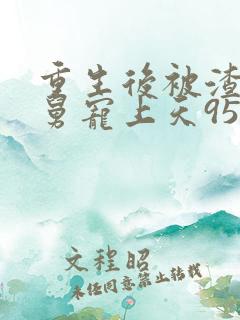 重生後被渣
舅寵上天95
文程昭
未任同意禁止转载